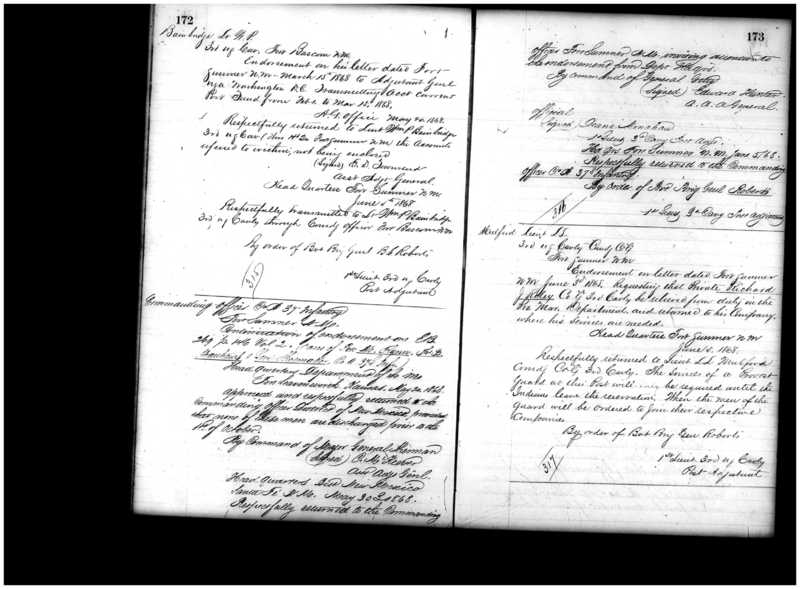 172
Bainbridge Lt W. P.
3rd U.S. Cav. Fort Bascom N.M.
Endorsement on his letter dated Fort
Sumner N.M. March 15th 1868 to Adjutant Genl
U.S.A. Washington D.C. Transmitting Acct Current
Post Fund from Feb to Mar 12, 1868.
A.G. Office May 20, 1868.
Respectfully returned to Lieut Wm P. Bainbridge
3rd U.S. Cav. Fort Sumner N.M. the Accounts
referred to within, not being enclosed
(Signed) E. D. Townsend
Asst Adjt General.
Head Quarters Fort Sumner N.M.
June 5th 1868
Respectfully transmitted to Lt Wm P Bainbridge
3rd U.S. Cavly through Comdg Officer Fort Bascom N.M.
By order of Bvt Brig Genl B. S. Roberts
1st Lieut 3rd U.S. Cavly
Post Adjutant
315
Commanding Officer Co. 37 Infantry
Fort Sumner N.M.
Continuation of endorsement on E.B.
Vol 2.
Head Quarters Department of the Mo
Fort Leavenworth Kansas, May 22, 1868.
Approved and respectfully returned to the
Commanding Officer District of New Mexico provided
that none of these men are discharged prior to the
1st of October
By Command of Major General Sherman
(Signed)
Head Quarters Dist New Mexico
Santa Fe N.M. May 30th 1868.
Respectfully returned to the Commanding
173
Officer Fort Sumner N.M. inviting attention to
the endorsement from Dept Hdqrs.
By command of General Getty
(Signed) Edward Hunter
A. A. A. General.
Official
Signed Deane Monahan
1st Lieut 3rd Cavy Post Adjt.
Hd Qrs Fort Sumner N.M. June 5, /68.
Respectfully returned to the Commanding
Officer Co. 37th Infantry
By Order of Bvt Brig Genl Roberts
316
1st Lieut 3rd Cavy Post Adjutant
Mulford Lieut L.L.
3rd U.S. Cavly Comdg Co G
Fort Sumner N.M.
Endorsement on letter dated Fort Sumner
N.M. June 3rd 1868. Requesting that Private Richard
J. Co G 3rd Cavly be relieved from duty in the
Department, and returned to his Company,
where his services are needed.
Head Quarters Fort Sumner N.M.
June 5. 1868.
Respectfully returned to Lieut L.L. Mulford
Comdg Co G 3rd Cavly. The services of a Provost
Guard at this Post will be required until the
Indians leave the reservation. When the men of the
Guard will be ordered to join their respective
Companies
By order of Bvt Brig Gen Roberts
317
1st Lieut. 3rd U.S. Cavly
Post Adjutant